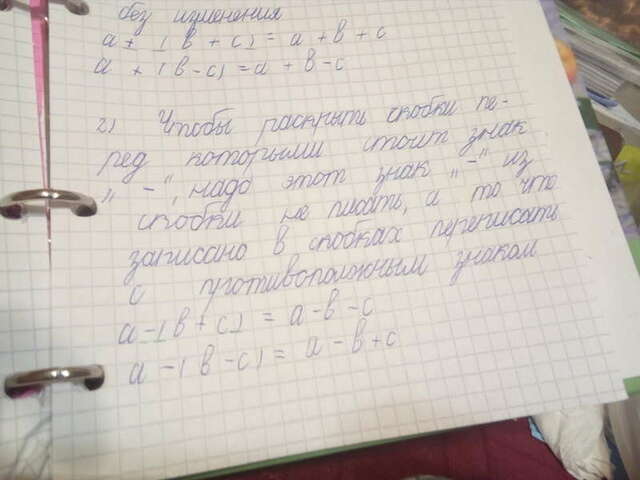 без изменения
a + (в + c) = a + в + c
a + (в - c) = a + в - c
2) Чтобы раскрыть скобки пе-
ред которыми стоит знак
„ - “, надо этот знак „ - “ из
скобки не писать, а то что
записано в скобках переписать
с противоположным знаком
a - (в + c) = a - в - c
a - (в - c) = a - в + c